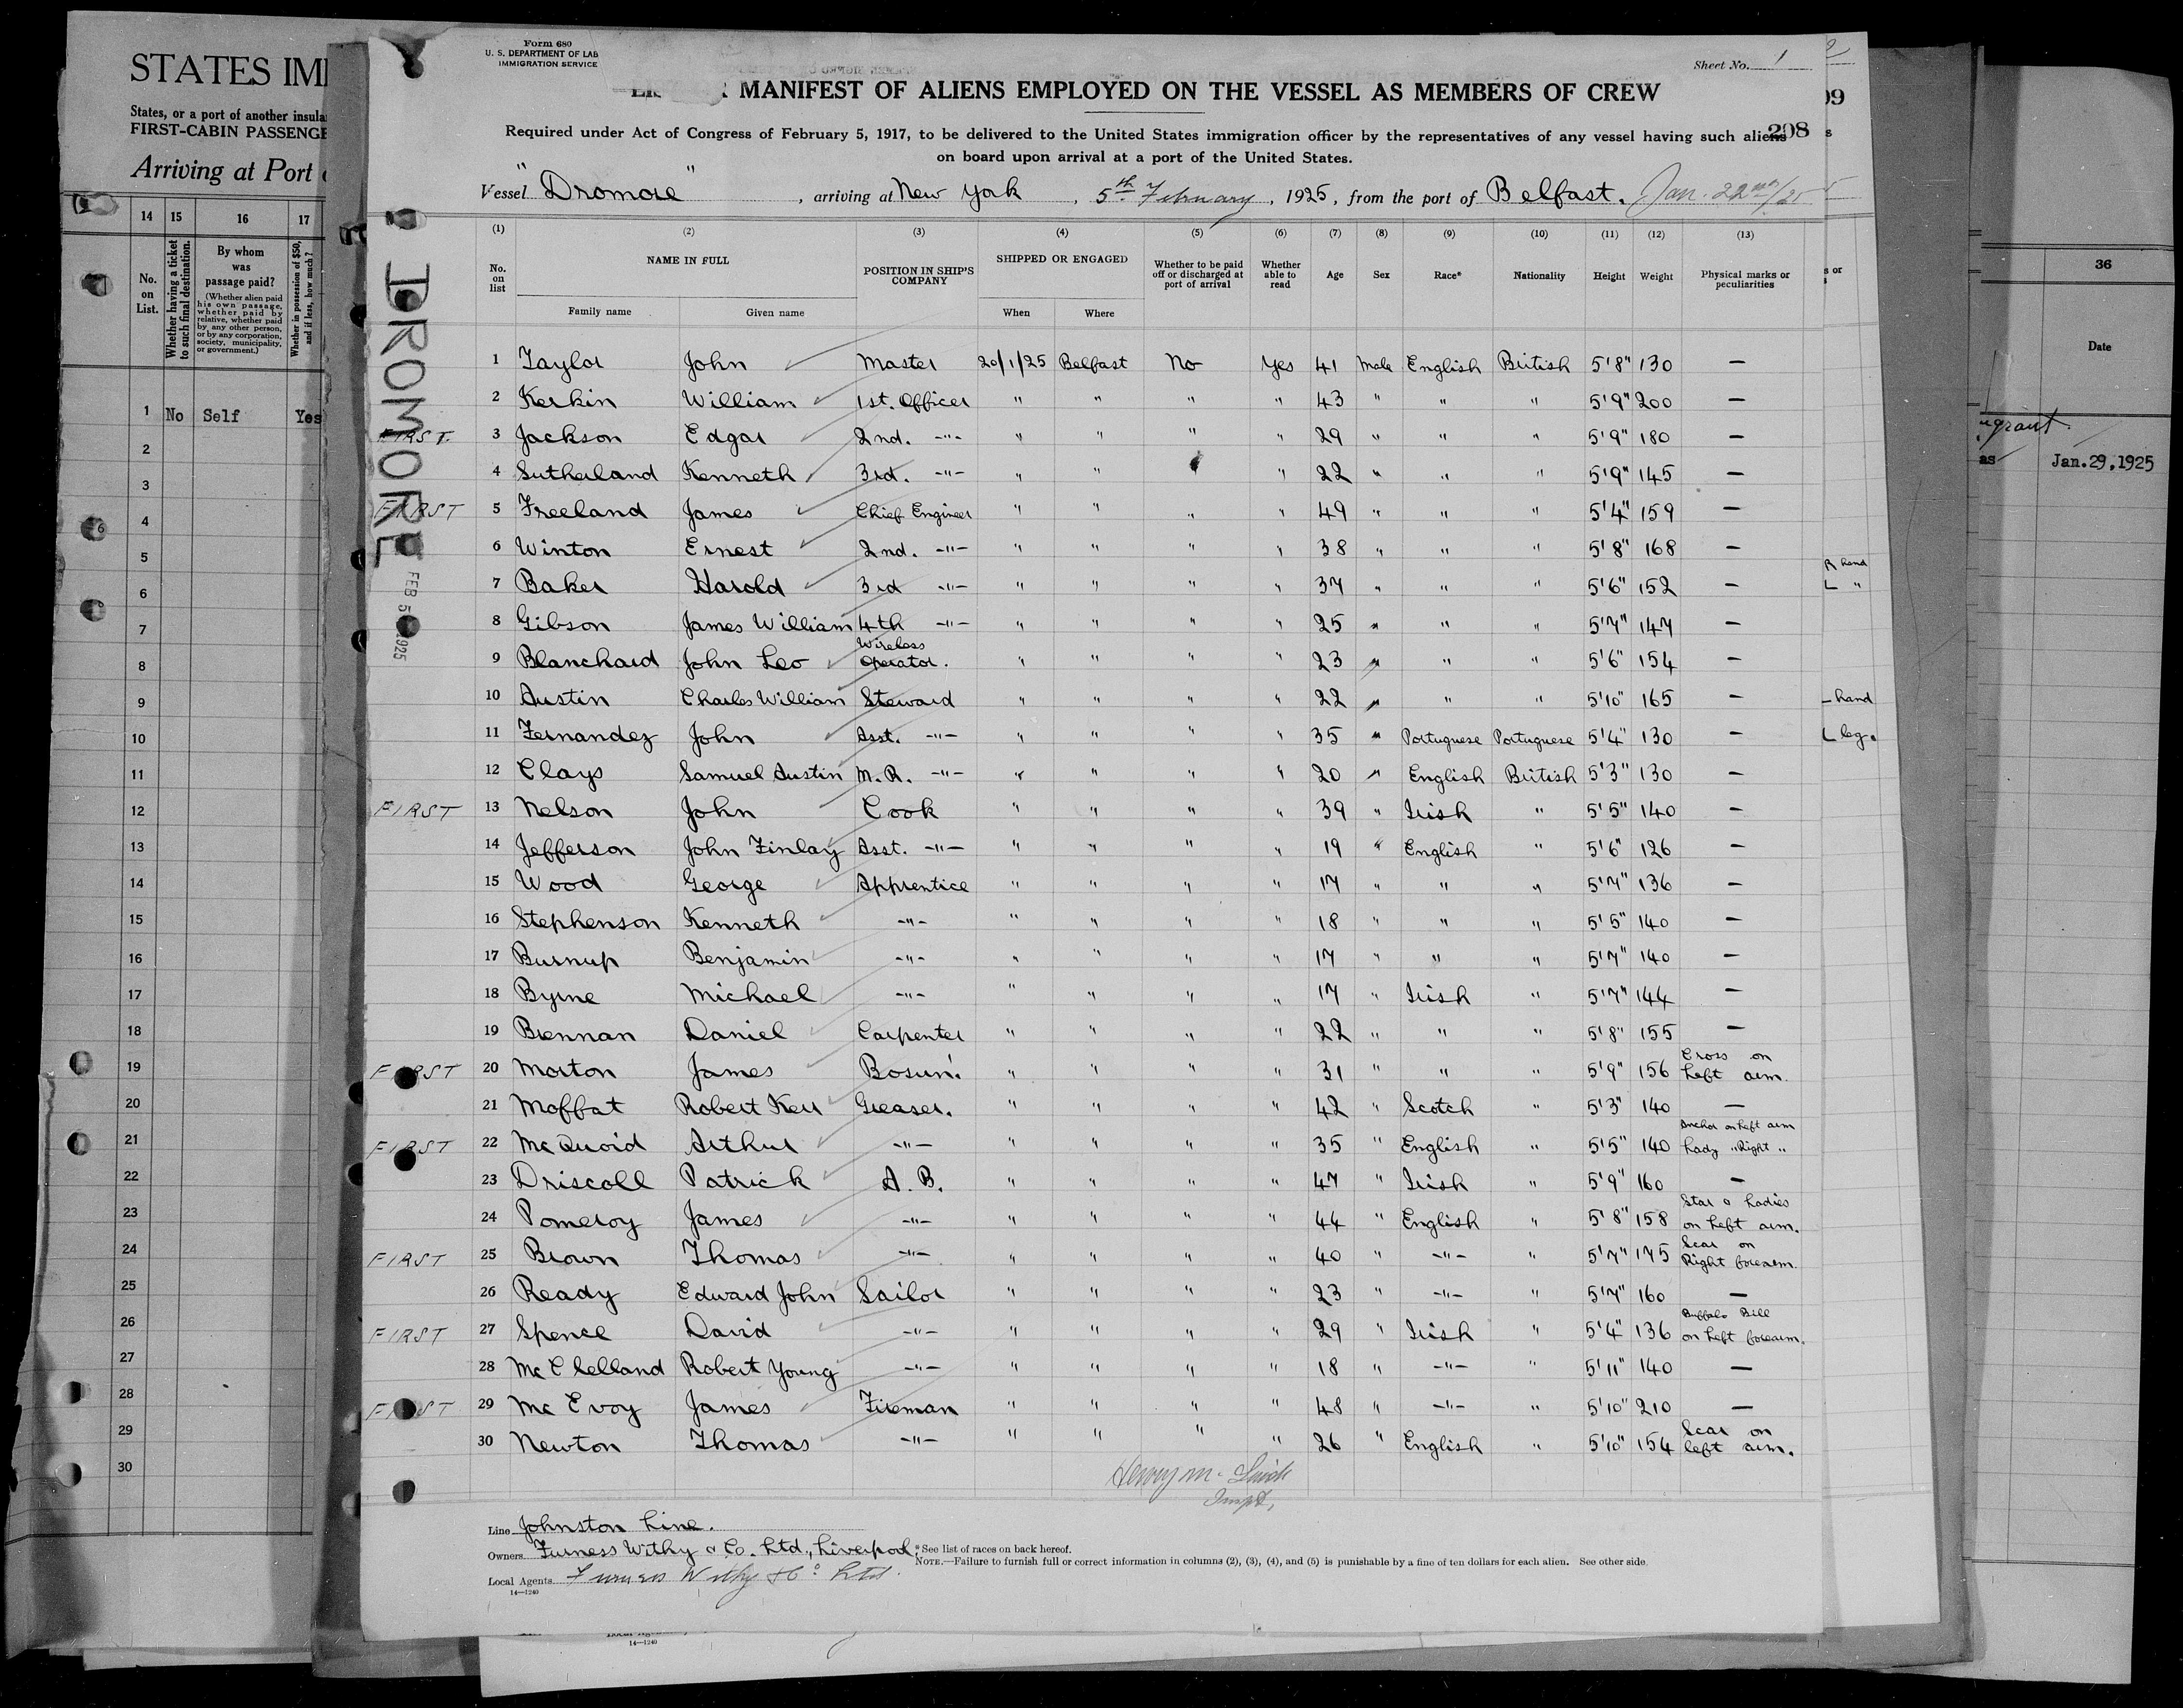 STATES IM
States, or a port of another insula
FIRST-CABIN PASSENGE
Arriving at Port
14 15 16 17
No. on List.
Whether having a ticket to such final destination.
By whom was passage paid?
(Whether alien paid his own passage, whether paid by relative, whether paid by any other person, or by any corporation, society, municipality, or government.)
Whether in possession of $50, and if less, how much?
1 No Self Yes
2
3
4
5
6
7
8
9
10
11
12
13
14
15
16
17
18
19
20
21
22
23
24
25
26
27
28
29
30
Form 680
U. S. DEPARTMENT OF LAB
IMMIGRATION SERVICE
Sheet No. 1
MANIFEST OF ALIENS EMPLOYED ON THE VESSEL AS MEMBERS OF CREW
Required under Act of Congress of February 5, 1917, to be delivered to the United States immigration officer by the representatives of any vessel having such aliens
208
on board upon arrival at a port of the United States.
Vessel "Dromore", arriving at New York, 5th February, 1925, from the port of Belfast. Jan. 22nd/25
DROMORE
FEB 5 1925
(1) (2) (3) (4) (5) (6) (7) (8) (9) (10) (11) (12) (13)
No. on list
NAME IN FULL
Family name Given name
POSITION IN SHIP'S COMPANY
SHIPPED OR ENGAGED
When Where
Whether to be paid off or discharged at port of arrival
Whether able to read
Age Sex Race* Nationality Height Weight
Physical marks or peculiarities
1 Taylor John Master 20/1/25 Belfast No Yes 41 Male English British 5'8" 130 —
2 Kerkin William 1st. Officer " " " " 43 " " " 5'9" 200 —
FIRST. 3 Jackson Edgar 2nd. -"- " " " " 29 " " " 5'9" 180 —
4 Sutherland Kenneth 3rd. -"- " " " " 22 " " " 5'9" 145 —
FIRST 5 Freeland James Chief Engineer " " " " 49 " " " 5'4" 159 —
6 Winton Ernest 2nd. -"- " " " " 38 " " " 5'8" 168 —
7 Baker Harold 3rd -"- " " " " 37 " " " 5'6" 152 —
8 Gibson James William 4th -"- " " " " 25 " " " 5'7" 147 —
9 Blanchard John Leo Wireless Operator. " " " " 23 " " " 5'6" 154 —
10 Austin Charles William Steward " " " " 22 " " " 5'10" 165 —
11 Fernandez John Asst. -"- " " " " 35 " Portuguese Portuguese 5'4" 130 —
12 Clays Samuel Austin M.R. -"- " " " " 20 " English British 5'3" 130 —
FIRST 13 Nelson John Cook " " " " 39 " Irish " 5'5" 140 —
14 Jefferson John Finlay Asst. -"- " " " " 19 " English " 5'6" 126 —
15 Wood George Apprentice " " " " 17 " " " 5'7" 136 —
16 Stephenson Kenneth -"- " " " " 18 " " " 5'5" 140 —
17 Burnup Benjamin -"- " " " " 17 " " " 5'7" 140 —
18 Byrne Michael -"- " " " " 17 " Irish " 5'7" 144 —
19 Brennan Daniel Carpenter " " " " 22 " " " 5'8" 155 —
FIRST 20 Morton James Bosun. " " " " 31 " " " 5'9" 156 Cross on Left arm.
21 Moffat Robert Kerr Greaser. " " " " 42 " Scotch " 5'3" 140 —
FIRST 22 McQuoid Arthur -"- " " " " 35 " English " 5'5" 140 Anchor on Left arm Lady " Right "
23 Driscoll Patrick A. B. " " " " 47 " Irish " 5'9" 160 —
24 Pomeroy James -"- " " " " 44 " English " 5'8" 158 Star & Ladies on Left arm.
FIRST 25 Brown Thomas -"- " " " " 40 " -"- " 5'7" 175 Scar on Right forearm.
26 Ready Edward John Sailor " " " " 23 " -"- " 5'7" 160 —
FIRST 27 Spence David -"- " " " " 29 " Irish " 5'4" 136 Buffalo Bill on Left forearm.
28 McClelland Robert Young -"- " " " " 18 " -"- " 5'11" 140 —
FIRST 29 McEvoy James Fireman " " " " 48 " -"- " 5'10" 210 —
30 Newton Thomas -"- " " " " 26 " English " 5'10" 154 Scar on left arm.
Inspt.
Line Johnston Line.
Owners Furness Withy & Co. Ltd., Liverpool.
*See list of races on back hereof.
NOTE.—Failure to furnish full or correct information in columns (2), (3), (4), and (5) is punishable by a fine of ten dollars for each alien. See other side.
Local Agents Furness Withy & Co Ltd.
14—1240
14—1240
2
99
s
s or
s
R hand
L "
hand
L leg.
36
Date
as Jan.29,1925